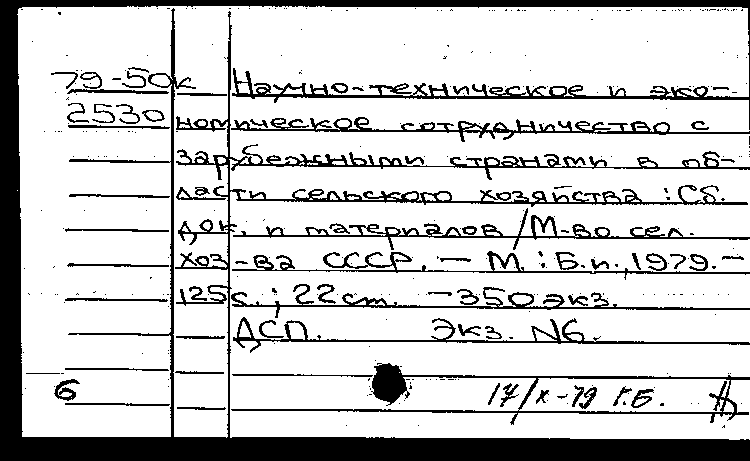 79-50к Научно-техническое и эко-
2530 номическое сотрудничество с
зарубежными странами в об-
ласти сельского хозяйства : Сб.
док. и материалов / М-во сел.
хоз-ва СССР. — М. : Б.и., 1979. —
125с. ; 22 см. — 350 экз.
ДСП. Экз. N6.
6 17/X-79 Г.Б.